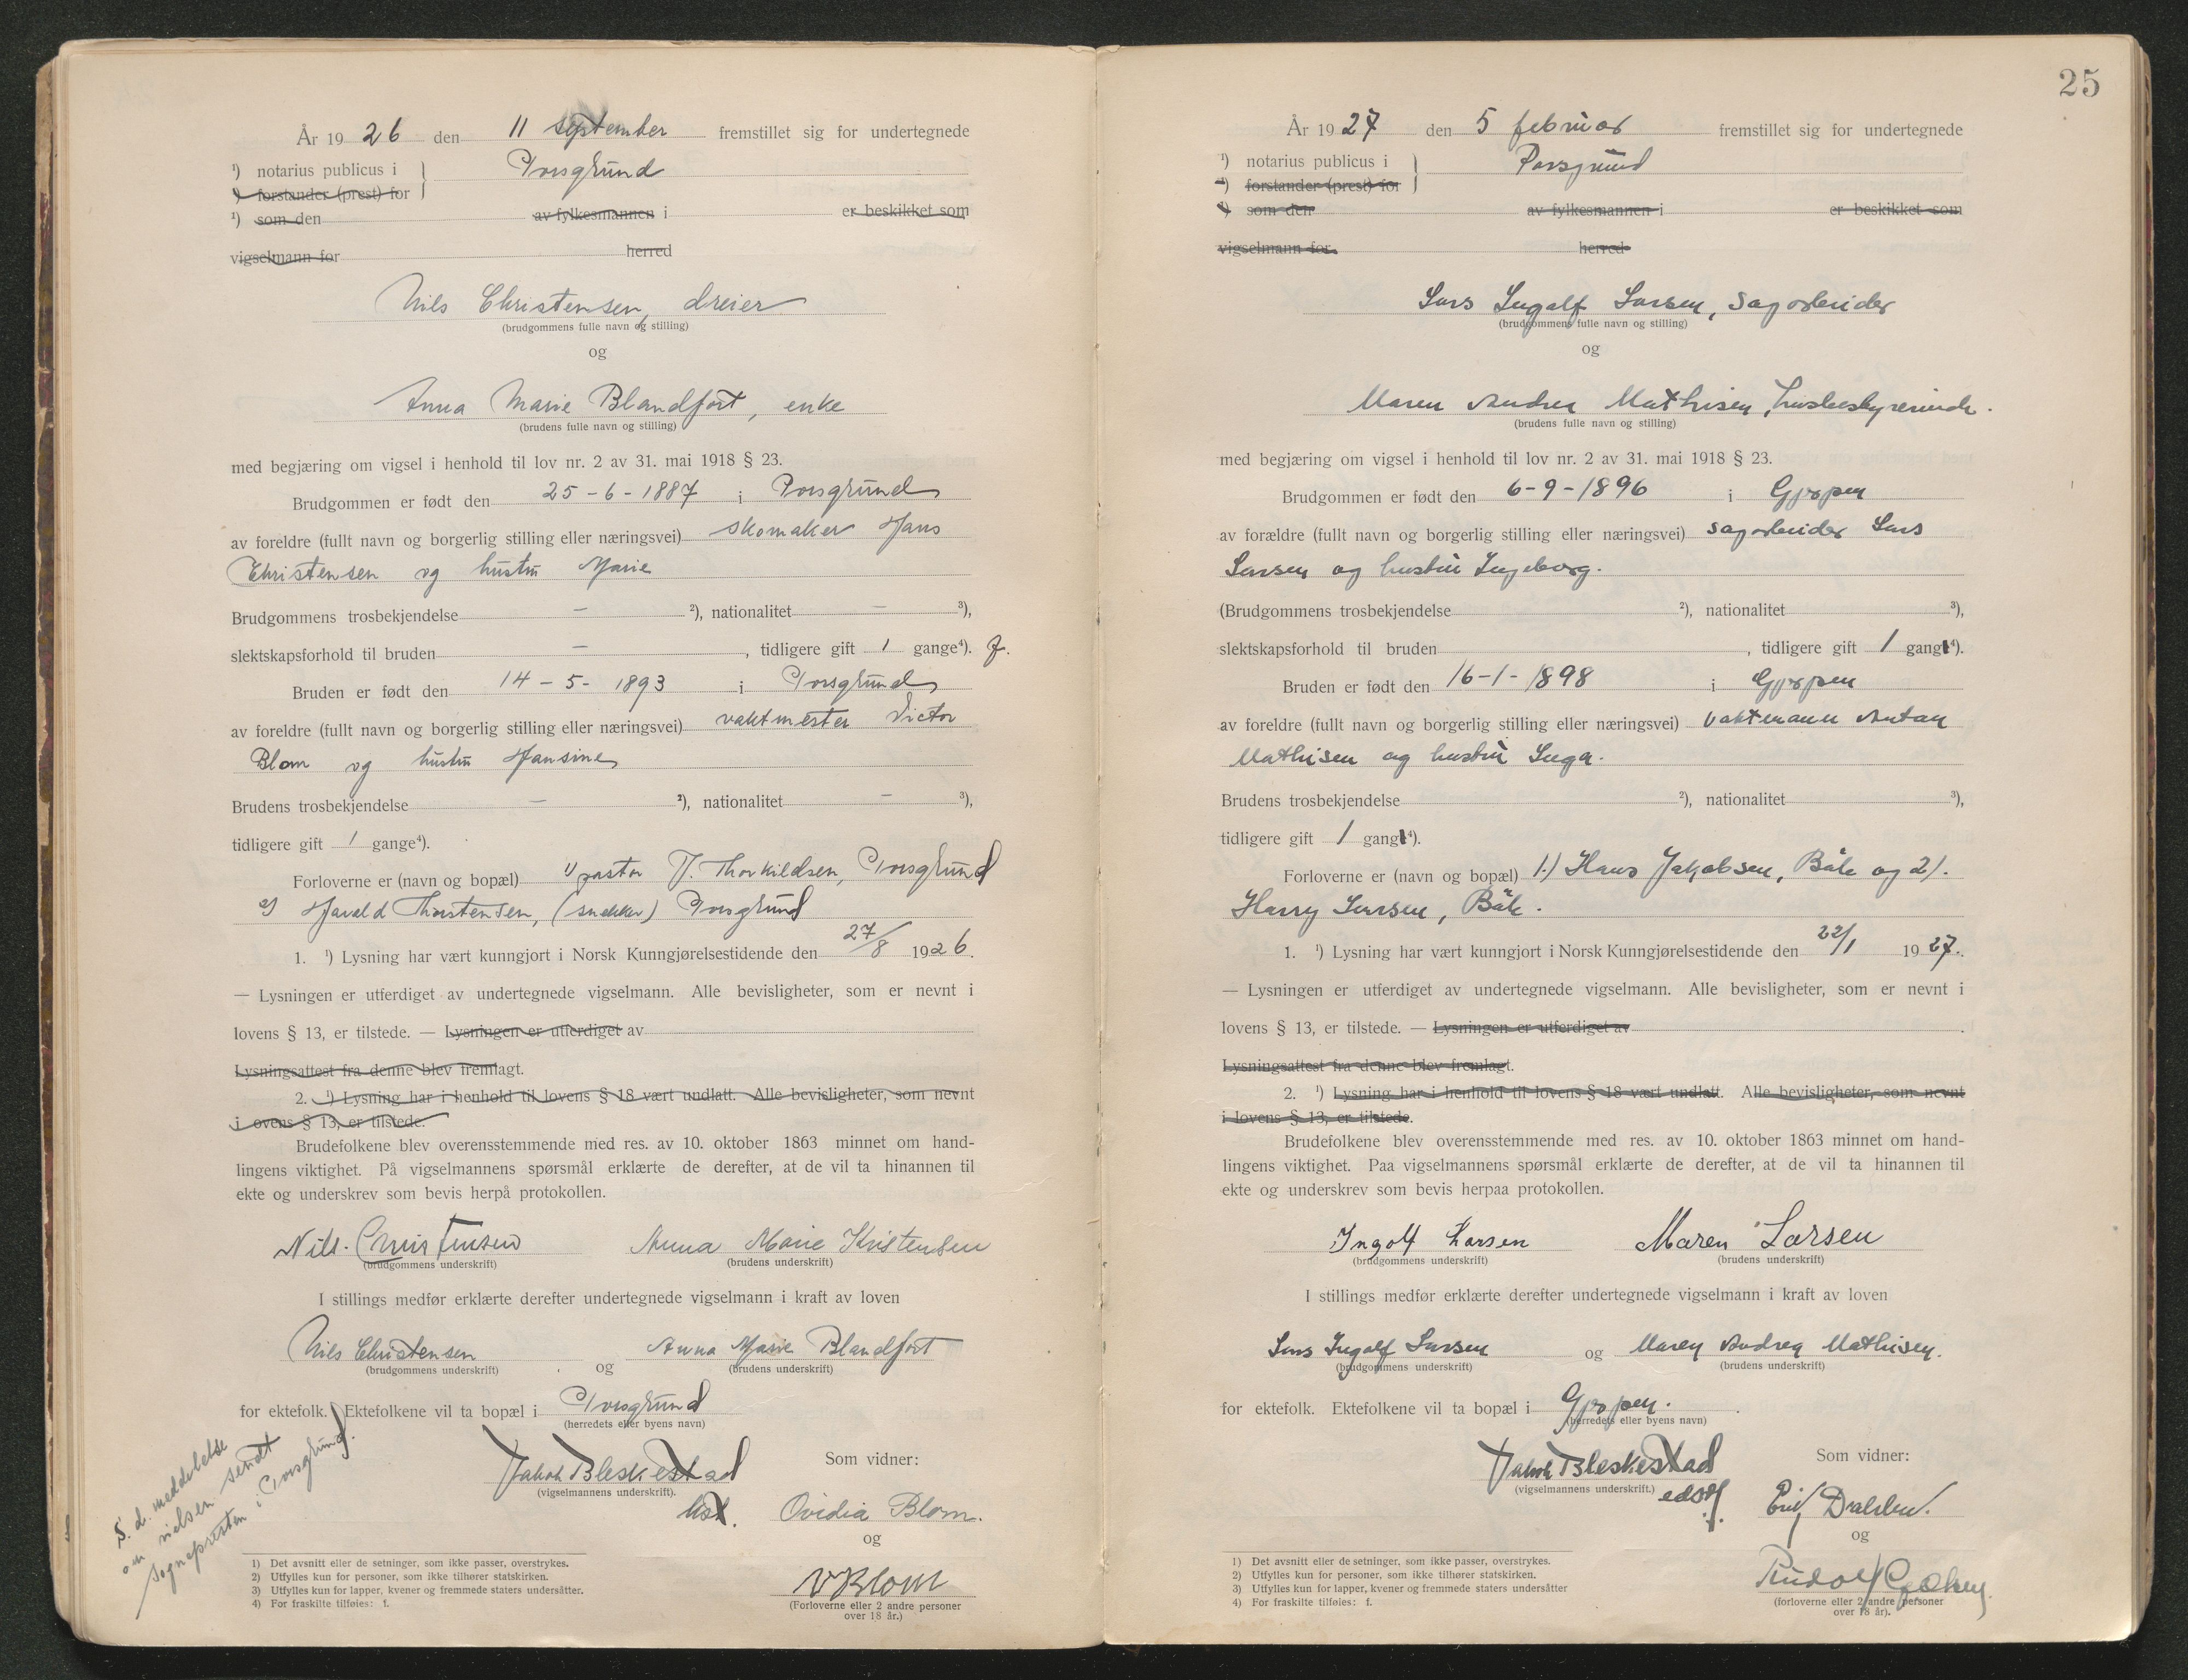 År 1926 den 11 september fremstillet sig for undertegnede
¹) notarius publicus i } Porsgrund
¹) forstander (prest) for
¹) som den av fylkesmannen i er beskikket som
vigselmann for herred
Nils Christensen, dreier
(brudgommens fulle navn og stilling)
og
Anna Marie Blandfort, enke
(brudens fulle navn og stilling)
med begjæring om vigsel i henhold til lov nr. 2 av 31. mai 1918 § 23.
Brudgommen er født den 25-6-1887 i Porsgrund
av foreldre (fullt navn og borgerlig stilling eller næringsvei) skomaker Hans
Christensen og hustru Marie
Brudgommens trosbekjendelse — ²), nationalitet — ³),
slektskapsforhold til bruden — , tidligere gift 1 gange⁴). f.
Bruden er født den 14-5-1893 i Porsgrund
av foreldre (fullt navn og borgerlig stilling eller næringsvei) vaktmester Victor
Blom og hustru Hansine
Brudens trosbekjendelse — ²), nationalitet — ³),
tidligere gift 1 gange⁴).
Forloverne er (navn og bopæl) 1) pastor T. Thorkildsen, Porsgrund
2) Harald Thorstensen, (snekker) Porsgrund
1. ¹) Lysning har vært kunngjort i Norsk Kunngjørelsestidende den 27/8 1926.
— Lysningen er utferdiget av undertegnede vigselmann. Alle bevisligheter, som er nevnt i
lovens § 13, er tilstede. — Lysningen er utferdiget av
Lysningsattest fra denne blev fremlagt.
2. ¹) Lysning har i henhold til lovens § 18 vært undlatt. Alle bevisligheter, som nevnt
i ovens § 13, er tilstede.
Brudefolkene blev overensstemmende med res. av 10. oktober 1863 minnet om hand-
lingens viktighet. På vigselmannens spørsmål erklærte de derefter, at de vil ta hinannen til
ekte og underskrev som bevis herpå protokollen.
Nils Christensen Anna Marie Kristensen
(brudgommens underskrift) (brudens underskrift)
I stillings medfør erklærte derefter undertegnede vigselmann i kraft av loven
Nils Christensen og Anna Marie Blandfort
(brudgommens underskrift) (brudens underskrift)
for ektefolk. Ektefolkene vil ta bopæl i Porsgrund
(herredets eller byens navn)
Jakob Bleskestad Som vidner:
(vigselmannens underskrift).
Ovidia Blom.
og
V Blom
(Forloverne eller 2 andre personer
over 18 år.)
S. d. meddelelse
om vielsen sendt
sognepresten i Porsgrund.
1) Det avsnitt eller de setninger, som ikke passer, overstrykes.
2) Utfylles kun for personer, som ikke tilhører statskirken.
3) Utfylles kun for lapper, kvener og fremmede staters undersåtter.
4) For fraskilte tilføies: f.
25
År 1927 den 5 februar fremstillet sig for undertegnede
¹) notarius publicus i } Porsgrund
¹) forstander (prest) for
¹) som den av fylkesmannen i er beskikket som
vigselmann for herred
Lars Ingolf Larsen, sagarbeider
(brudgommens fulle navn og stilling)
og
Maren Andrea Mathisen, husbestyrerinde.
(brudens fulle navn og stilling)
med begjæring om vigsel i henhold til lov nr. 2 av 31. mai 1918 § 23.
Brudgommen er født den 6-9-1896 i Gjerpen
av forældre (fullt navn og borgerlig stilling eller næringsvei) sagarbeider Lars
Larsen og hustru Ingeborg.
(Brudgommens trosbekjendelse ²), nationalitet ³),
slektskapsforhold til bruden , tidligere gift 1 gang⁴).
Bruden er født den 16-1-1898 i Gjerpen
av foreldre (fullt navn og borgerlig stilling eller næringsvei) vaktmann Anton
Mathisen og hustru Inga.
Brudens trosbekjendelse ²), nationalitet ³),
tidligere gift 1 gang⁴).
Forloverne er (navn og bopæl) 1.) Hans Jakobsen, Bøle og 2).
Harry Larsen, Bøle.
1. ¹) Lysning har vært kunngjort i Norsk Kunngjørelsestidende den 22/1 1927.
— Lysningen er utferdiget av undertegnede vigselmann. Alle bevisligheter, som er nevnt i
lovens § 13, er tilstede. — Lysningen er utferdiget av
Lysningsattest fra denne blev fremlagt.
2. ¹) Lysning har i henhold til lovens § 18 vært undlatt. Alle bevisligheter, som nevnt
i lovens § 13, er tilstede.
Brudefolkene blev overensstemmende med res. av 10. oktober 1863 minnet om hand-
lingens viktighet. Paa vigselmannens spørsmål erklærte de derefter, at de vil ta hinannen til
ekte og underskrev som bevis herpaa protokollen.
Ingolf Larsen Maren Larsen
(brudgommens underskrift) (brudens underskrift)
I stillings medfør erklærte derefter undertegnede vigselmann i kraft av loven
Lars Ingolf Larsen og Maren Andrea Mathisen.
(brudgommens underskrift) (brudens underskrift)
for ektefolk. Ektefolkene vil ta bopæl i Gjerpen.
(herredets eller byens navn)
Jakob Bleskestad Som vidner:
(vigselmannens underskrift.) edsv.
og
Rudolf
(forloverne eller 2 andre personer
over 18 år).
1) Det avsnitt eller de setninger, som ikke passer, overstrykes.
2) Utfylles kun for personer, som ikke tilhører statskirken.
3) Utfylles kun for lapper, kvener og fremmede staters undersåtter
4) For fraskilte tilføies: f.